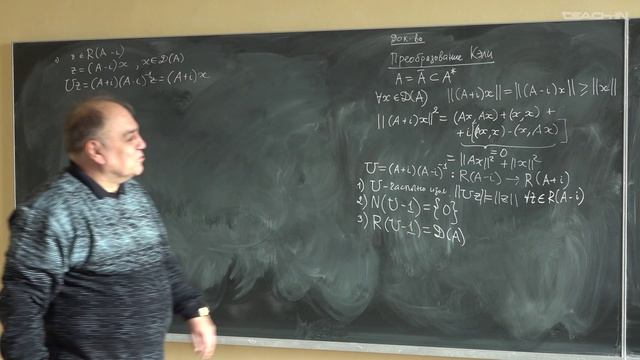 1) z ∈ R(A-i)
z = (A-i)x , x ∈ D(A)
Uz = (A+i)(A-i)⁻¹z = (A+i)x
Док-во
Преобразование Кэли
A = Ā ⊂ A*
∀x ∈ D(A) ||(A+i)x|| = ||(A-i)x|| ≥ ||x||
||(A+i)x||² = (Ax, Ax) + (x, x) +
+ i[(Ax, x) - (x, Ax)]
= 0
= ||Ax||² + ||x||²
U = (A+i)(A-i)⁻¹ : R(A-i) → R(A+i)
1) U - частично изом. ||Uz|| = ||z|| ∀z ∈ R(A-i)
2) N(U-1) = {0}
3) R(U-1) = D(A)
TEACH-IN